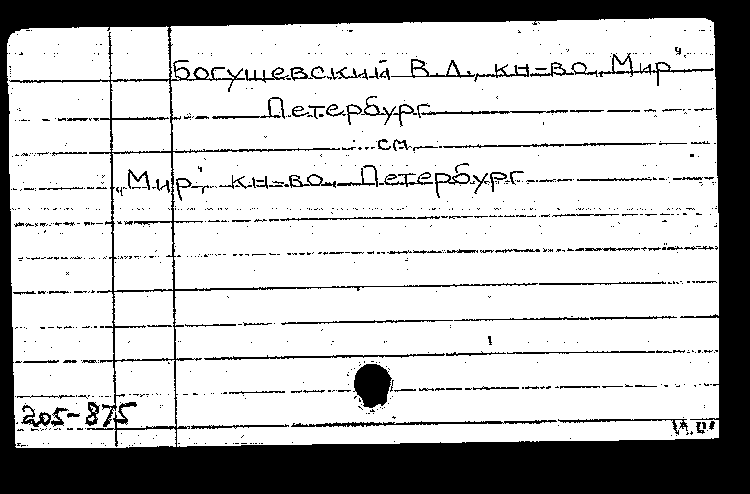 Богушевский В.Л., кн-во „Мир"
Петербург
см.
„Мир", кн-во. Петербург
205-875